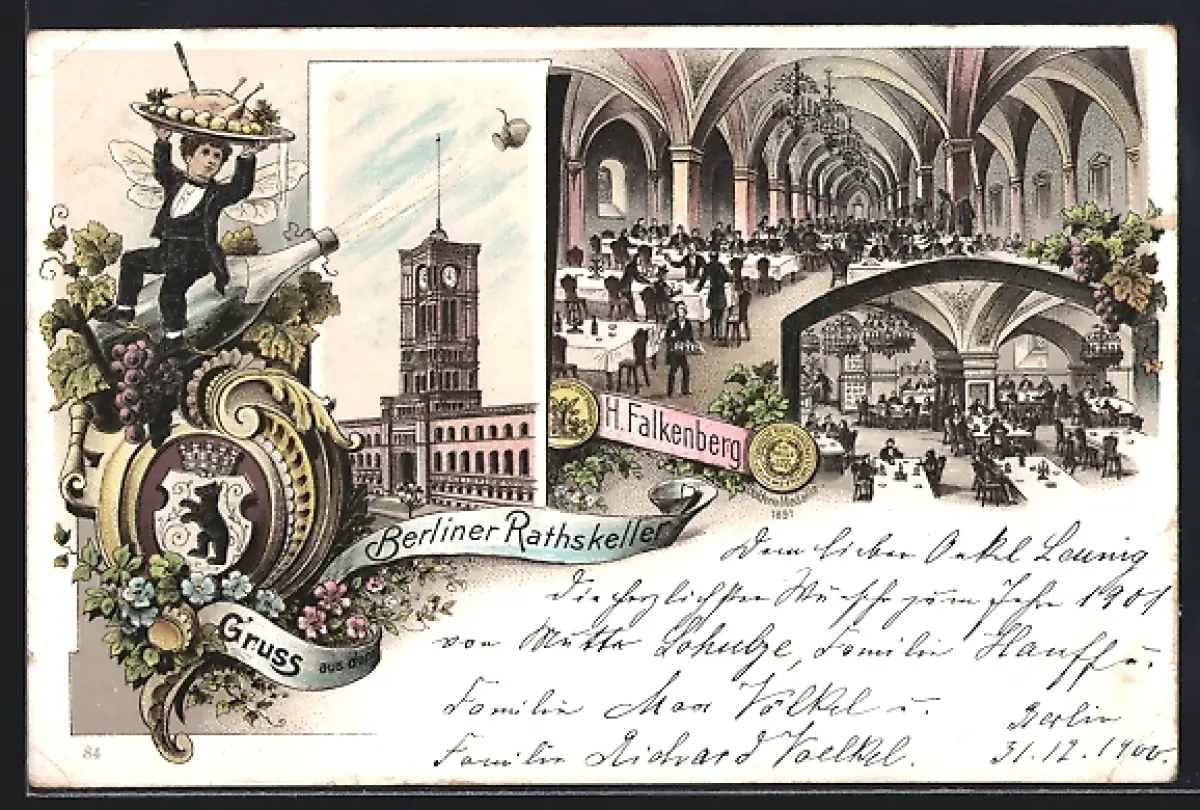 H. Falkenberg
1891
Berliner Rathskeller
Gruss aus dem
Dem lieber Onkel Leunig
die herzlichsten Wünsche zum Jahr 1901
von Mutter Schulze, Familie Hauff u.
Familie Max Völkel u.
Familie Richard Voelkel.
Berlin
31.12.1900.
84